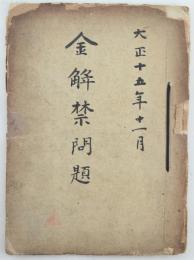 大正十五年十一月
金解禁問題